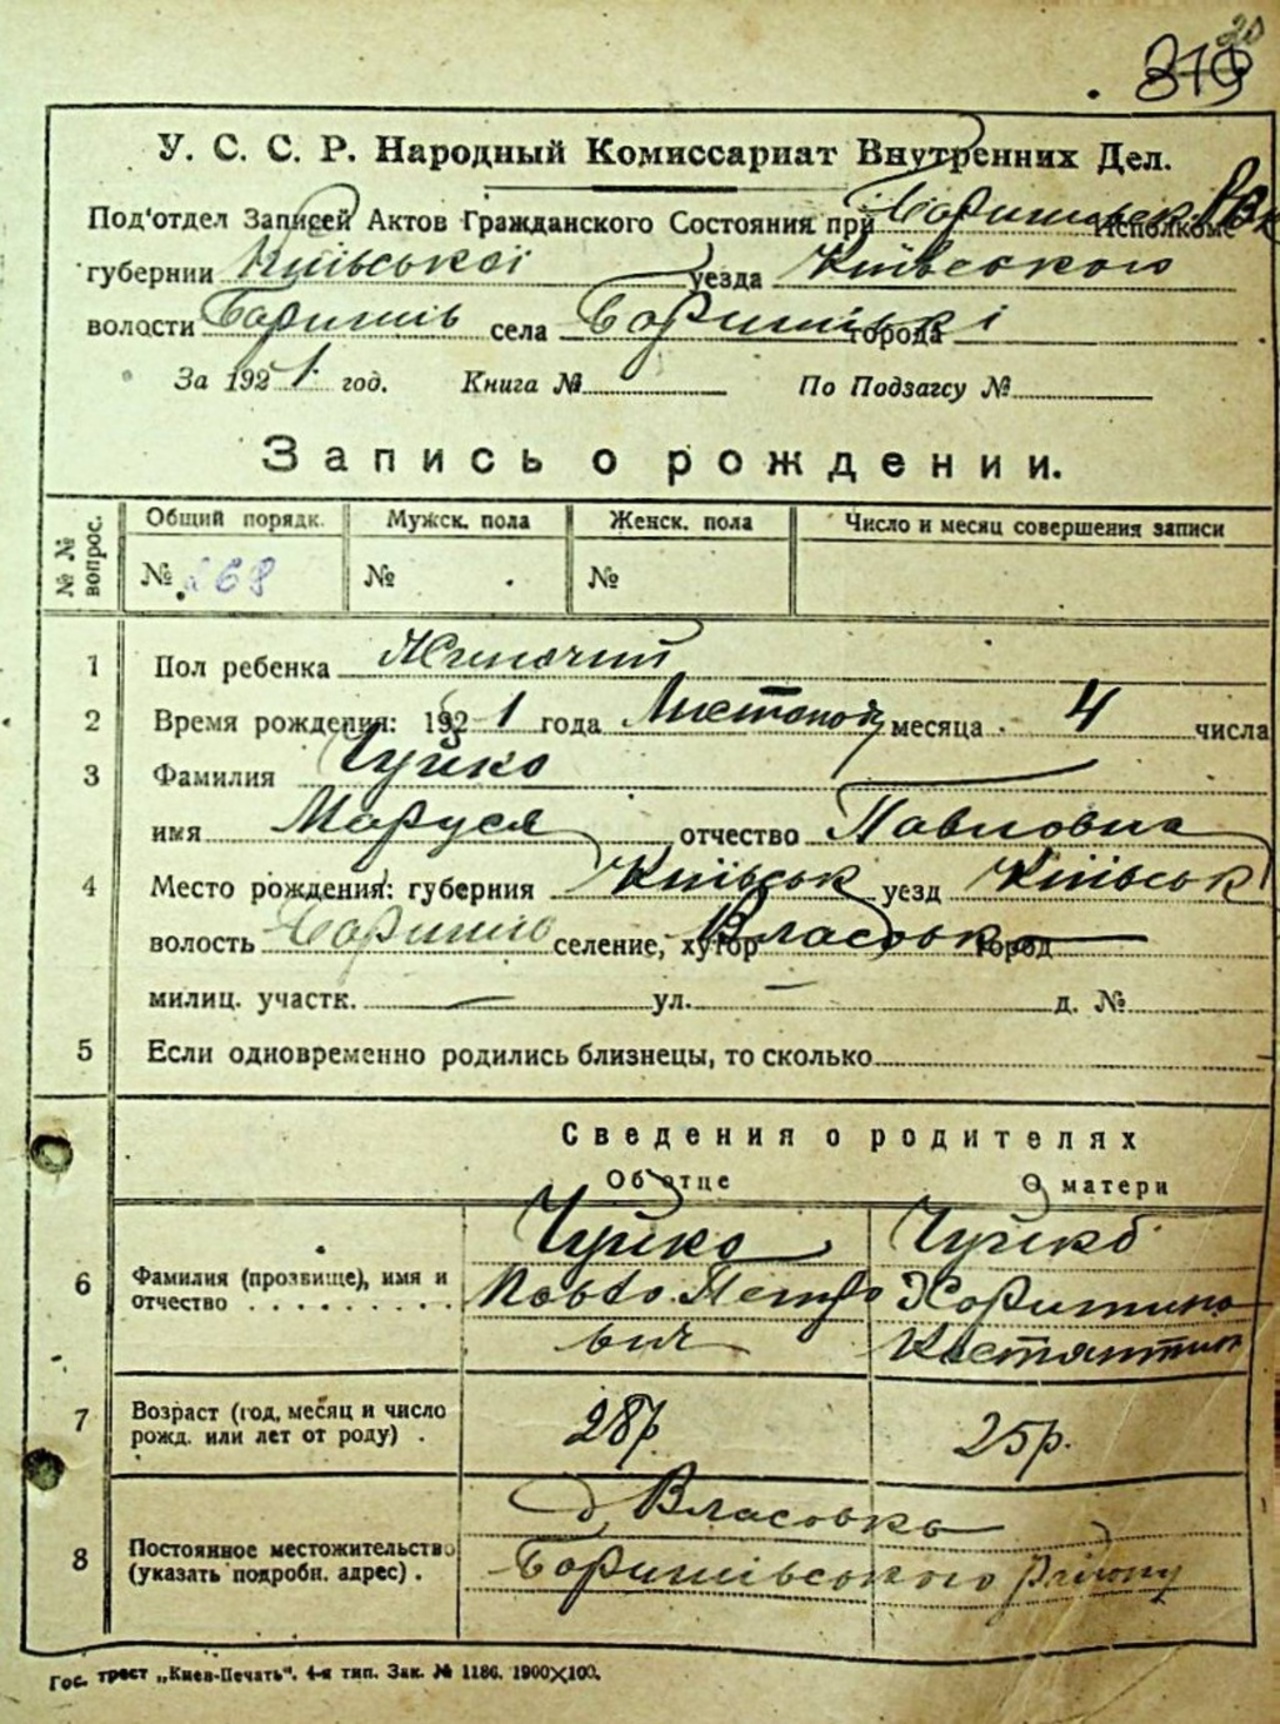 20
319
У. С. С. Р. Народный Комиссариат Внутренних Дел.
Под'отдел Записей Актов Гражданского Состояния при Баришівськ. Исполкоме
губернии Київської уезда Київського
волости Баришів села Баришівці города
За 1921 год. Книга № По Подзагсу №
Запись о рождении.
№ № вопрос. Общий порядк. Мужск. пола Женск. пола Число и месяц совершения записи
№ 268 № №
1 Пол ребенка Жиночий
2 Время рождения: 1921 года Листопад месяца 4 числа
3 Фамилия Чуйко
имя Маруся отчество Павловна
4 Место рождения: губерния Київськ уезд Київськ
волость Баришів селение, хутор Власовка город
милиц. участк. — ул. — д. №
5 Если одновременно родились близнецы, то сколько
Сведения о родителях
Об отце О матери
6 Фамилия (прозвище), имя и отчество Чуйко Чуйко
Павло Петро Харитина
вич Костянтин
7 Возраст (год, месяц и число рожд. или лет от роду) 28р. 25р.
8 Постоянное местожительство (указать подробн. адрес) д. Власовка
Баришівського району
Гос. трест „Киев-Печать“. 4-я тип. Зак. № 1186. 1900×100.